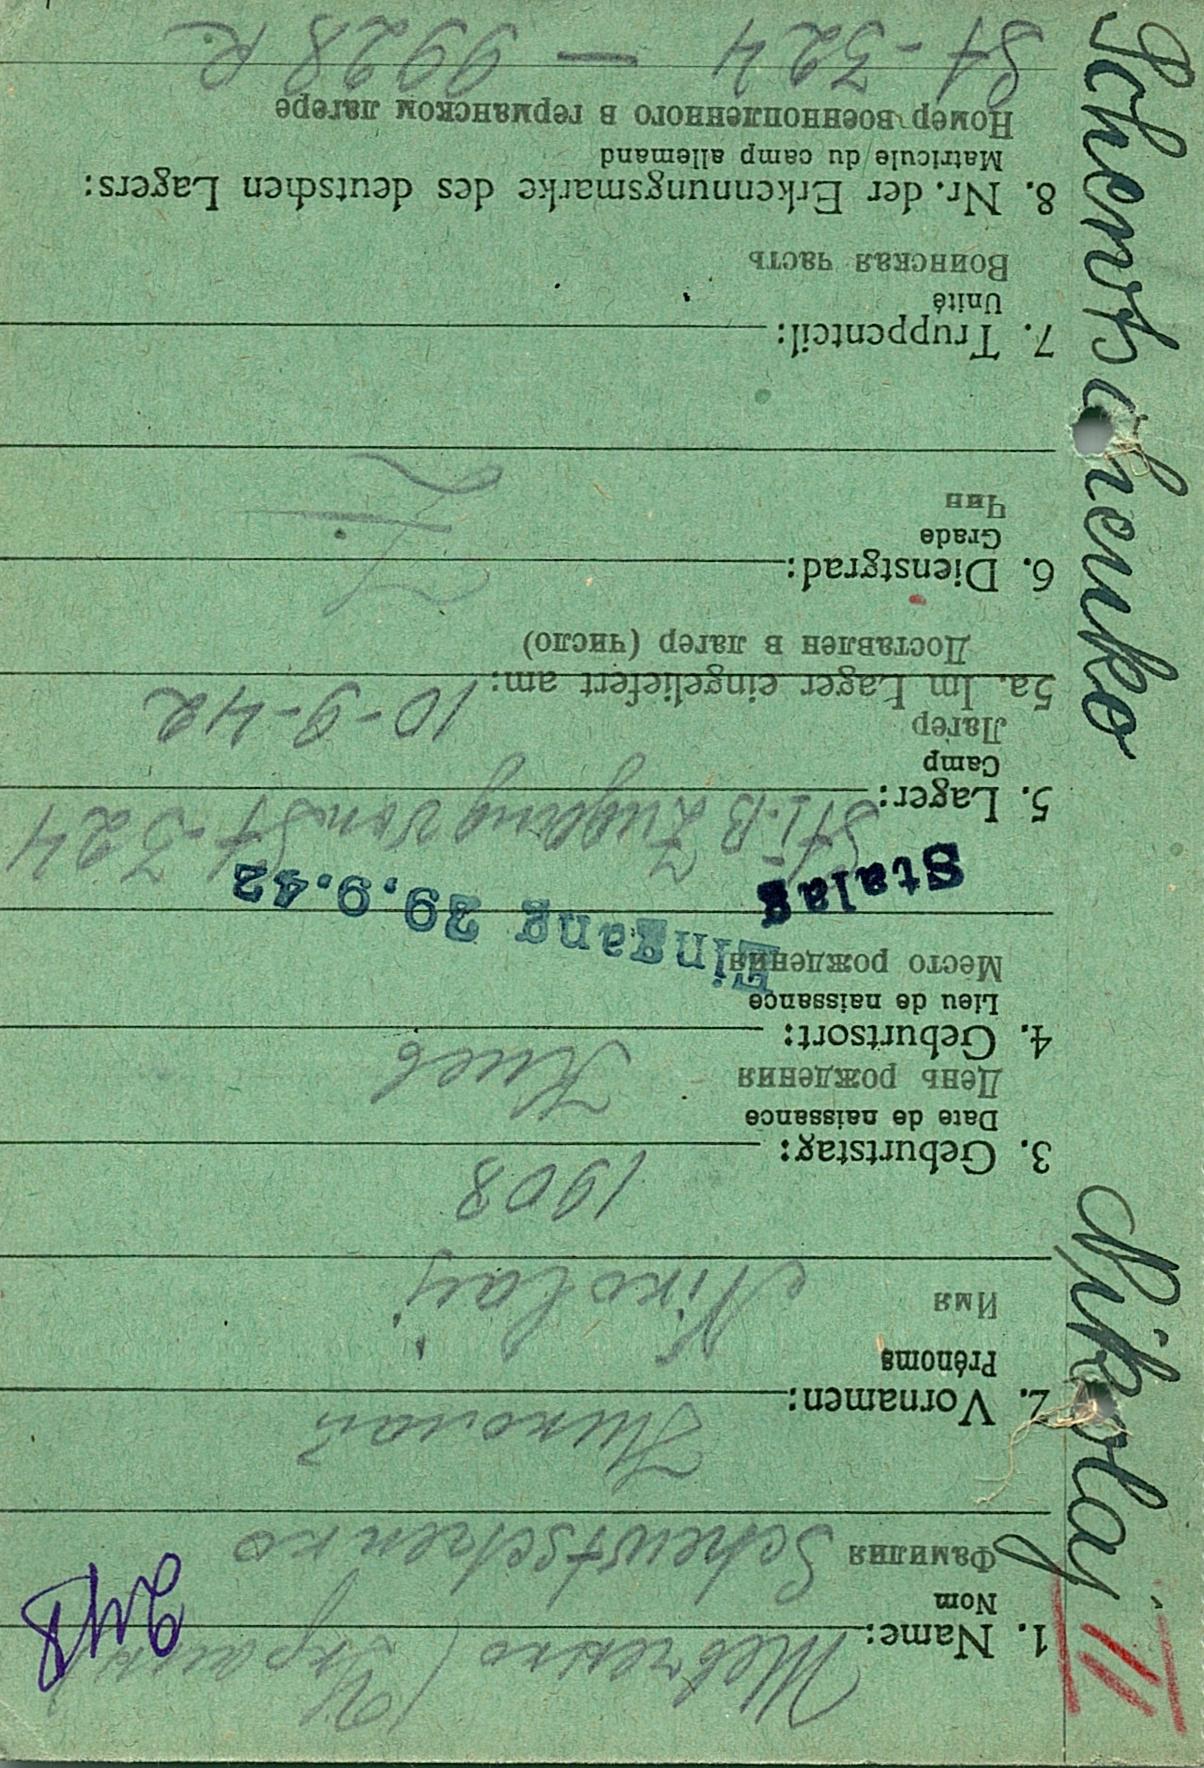 Schewtschenko Nikolaj
II
1. Name: Шевченко (Украин
Nom
Фамилия Schewtschenko
2. Vornamen: Николай
Prénoms
Имя Nikolaj
3. Geburtstag: 1908
Date de naissance
День рождения
4. Geburtsort: Киев
Lieu de naissance
Место рождения
Eingang 29.9.42
Stalag
5. Lager: St I-B Zugang von St-324
Camp
Лагер
5a. Im Lager eingeliefert am: 10-9-42
Доставлен в лагер (число)
6. Dienstgrad:
Grade
Чин
7. Truppenteil:
Unité
Воинская часть
8. Nr. der Erkennungsmarke des deutschen Lagers:
Matricule du camp allemand
Номер военнопленного в германском лагере
St-324 — 9928 R.